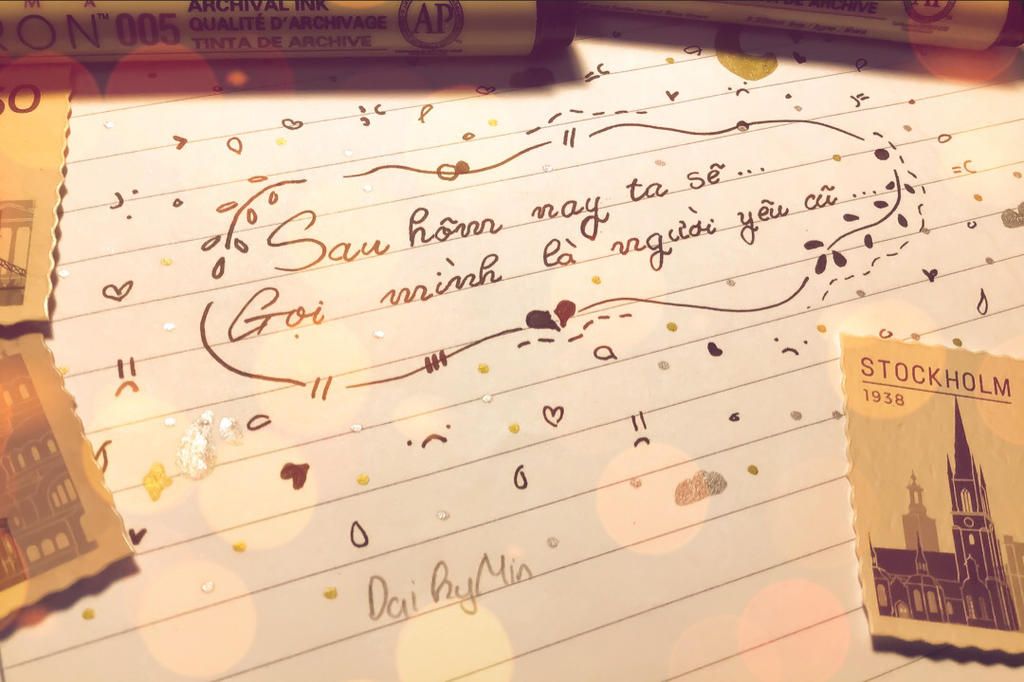 ARCHIVAL INK
RON™ 005 QUALITÉ D'ARCHIVAGE
TINTA DE ARCHIVE
AP
Sau hôm nay ta sẽ...
Gọi mình là người yêu cũ...
STOCKHOLM
1938